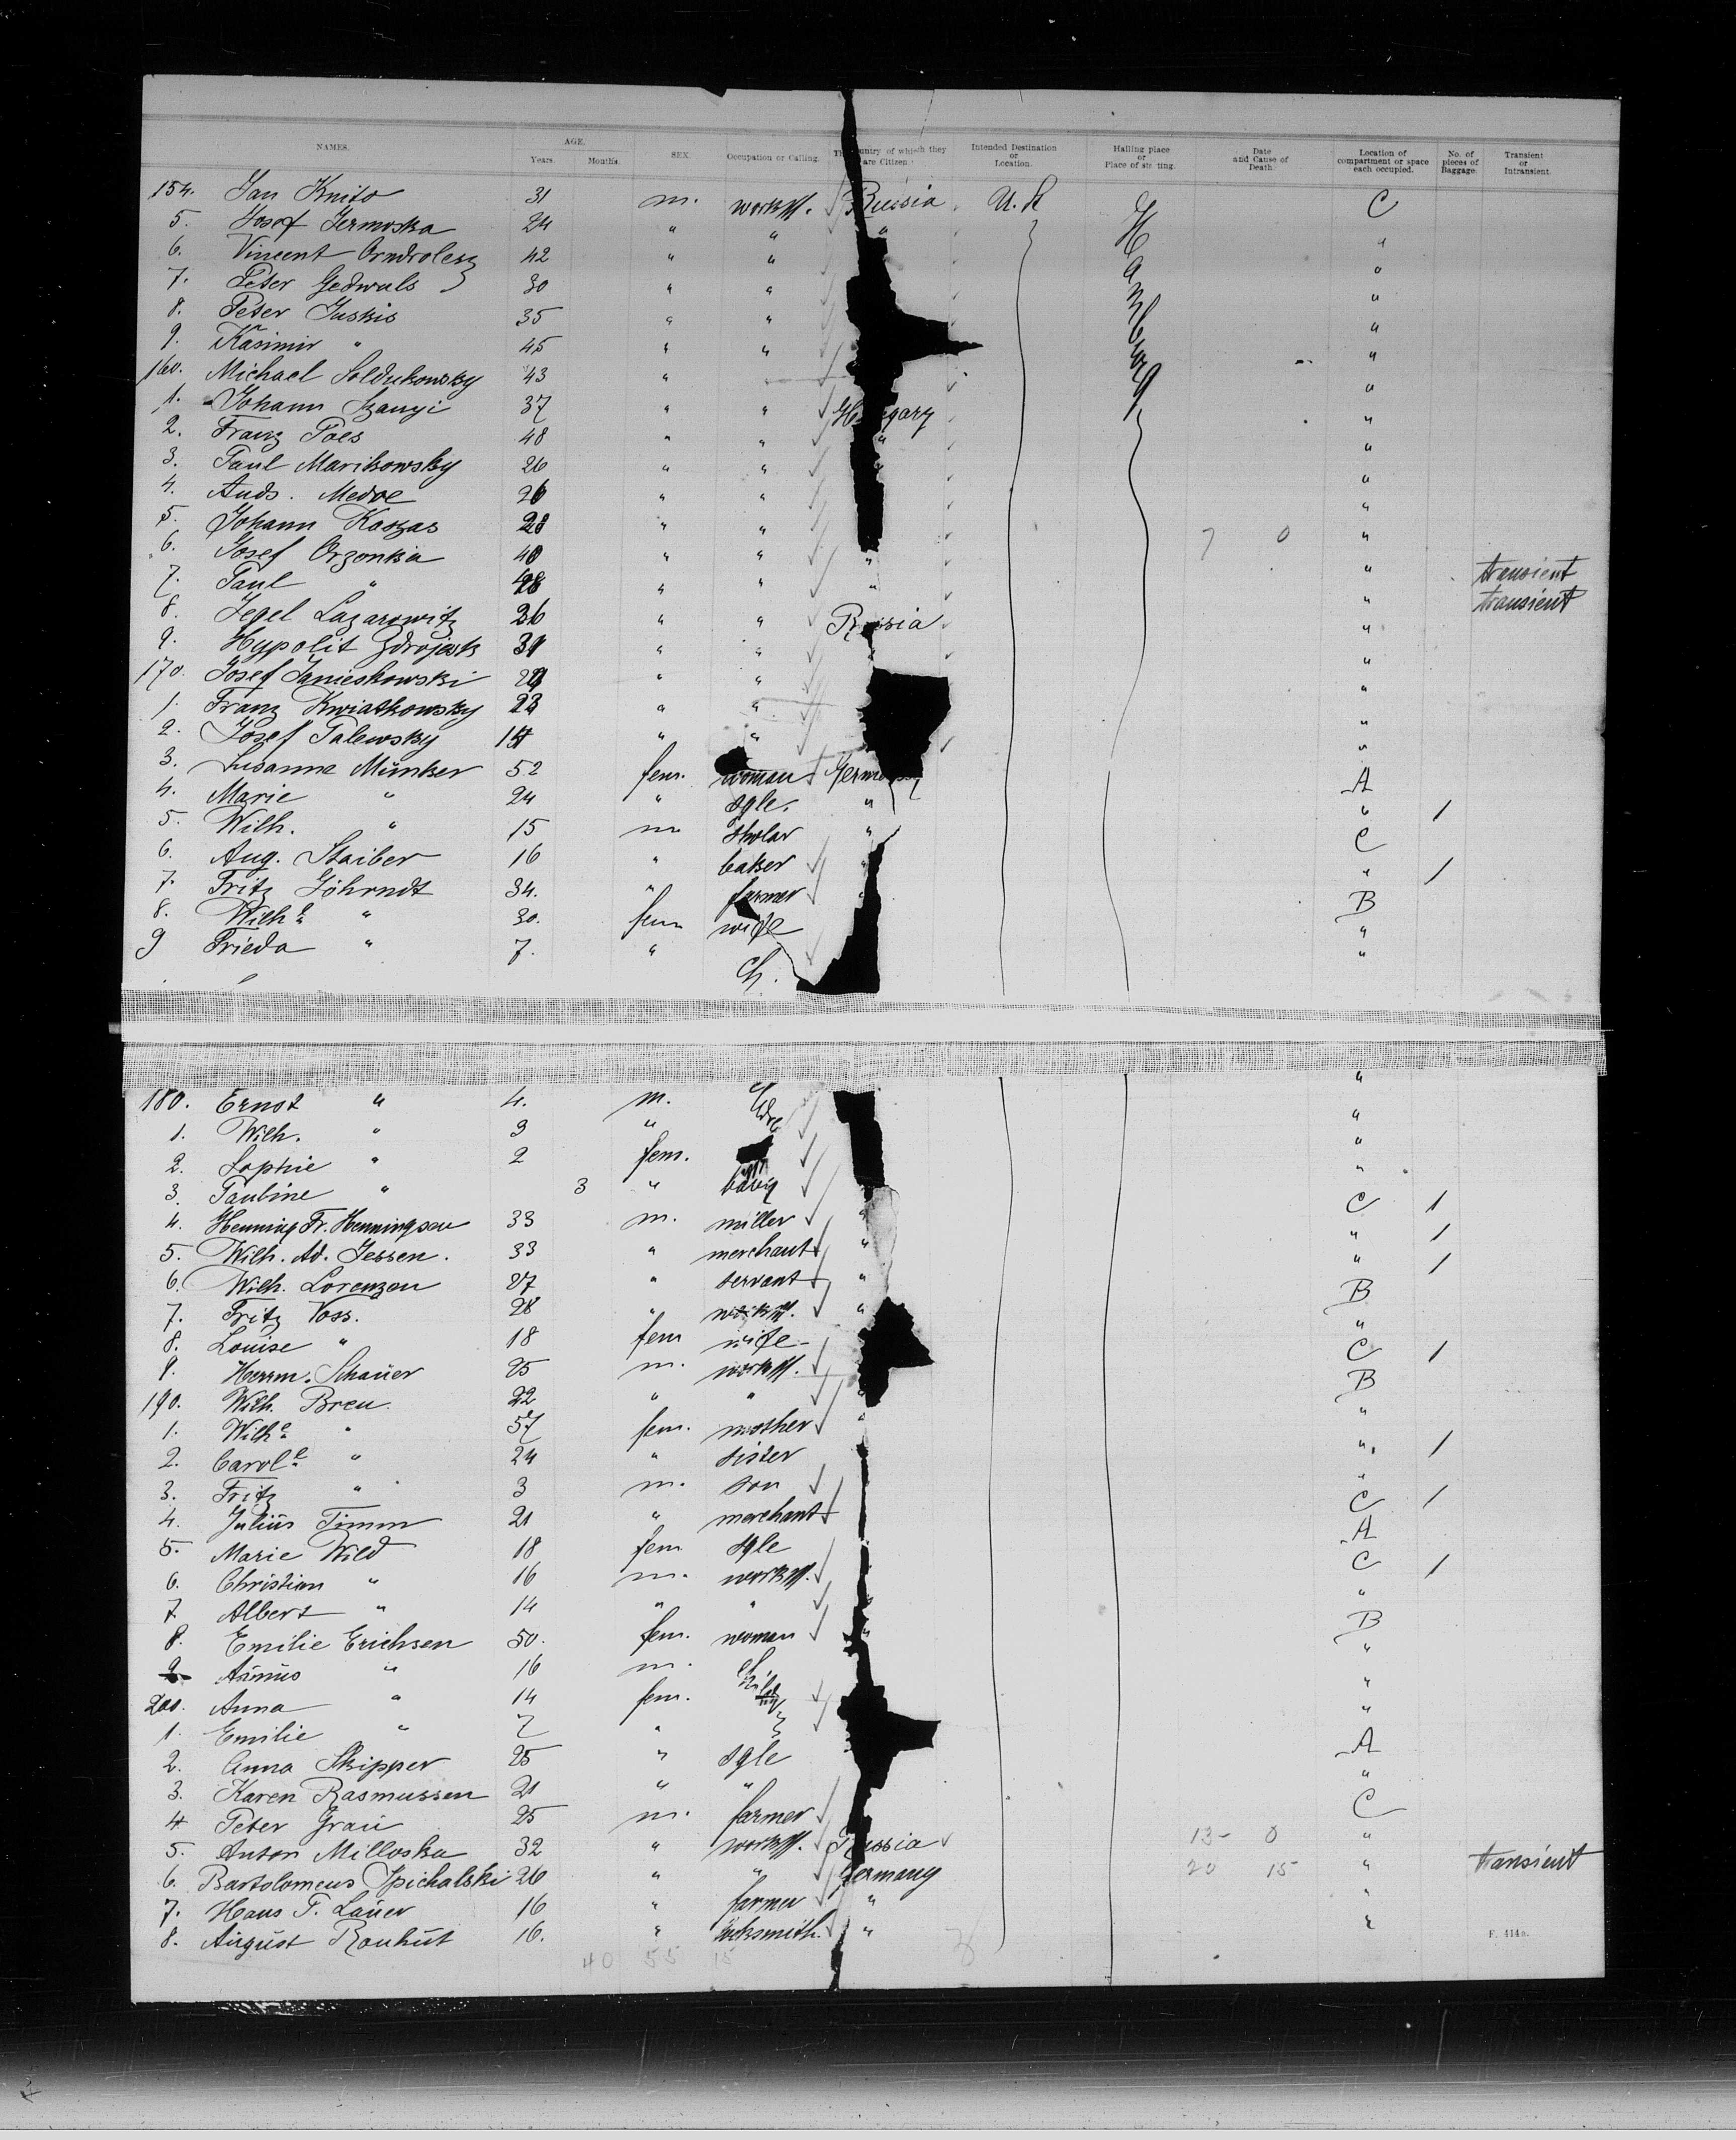 NAMES. AGE. Years. Months. SEX. Occupation or Calling. The Country of which they are Citizen. Intended Destination or Location. Hailing place or Place of starting. Date and Cause of Death. Location of compartment or space each occupied. No. of pieces of Baggage. Transient or Intransient.
154. Jan Knito 31 m. Russia U. S. Hamburg C
5. Josef Jermoska 24 " " " "
6. Vincent 42 " " "
7. Peter Gedwuls 30 " " "
8. Peter Juskis 35 " " "
9. Kasimir " 45 " " "
160. Michael Soldukowsky 43 " "
1. Johann Szanyi 37 " " Hungary "
2. Franz Poes 48 " " " "
3. Paul Marikowsky 26 " " "
4. Ands. Medve 26 " " "
5. Johann Kaszas 28 " " "
6. Josef Orzonka 40 " " " " transient
7. Paul " 28 " " " " transient
8. Lazarowitz 26 " " Russia "
9. Hypolit " " "
170. Josef Janieskowski " " "
1. Franz Kwiatkowsky 23 " " "
2. Josef Palewsky " " "
3. Susanna Münker 52 fem. woman Germany A
4. Marie " 24 " sgle. " " 1
5. Wilh. " 15 m. " C
6. Aug. Staiber 16 " baker " 1
7. Fritz Jöhrndt 34. " farmer B
8. Wilhe " 30. fem wife "
9 Frieda " 7. " Ch. "
180. Ernst " 4. m. "
1. Wilh. " 3 " "
2. Sophie " 2 fem. "
3. Pauline " 3 " baby "
4. Henning Fr. Henningsen 33 m. miller " C 1
5. Wilh. Ad. Jessen. 33 " merchant " " 1
6. Wilh. Lorenzen 27 " servant " " 1
7. Fritz Voss. 28 " " B
8. Louise " 18 fem wife "
9. Herrm. Schauer 25 m. C 1
190. Wilh. Breu 22 " " B
1. Wilhe " 57 fem. mother "
2. Carole " 24 " sister " 1
3. Fritz " 3 m. son "
4. Julius Timm 21 " merchant C 1
5. Marie Wild 18 fem. sgle A
6. Christian " 16 m. C 1
7. Albert " 14 " " "
8. Emilie Erichsen 50. fem. woman " B
9 Asmus " 16 m. "
200. Anna " 14 fem. "
1. Emilie " 7 " "
2. Anna Skipper 25 " sgle A
3. Karen Rasmussen 21 " " "
4 Peter Grau 25 m. farmer C
5. Anton Milloska 32 " Russia 13- 0 "
6. Bartolomeus Spichalski 26 " " Germany 20 15 " transient
7. Hans P. Lauer 16 " farmer " "
8. August Rouhut 16. " locksmith. " "
40 55 15
F. 414a.